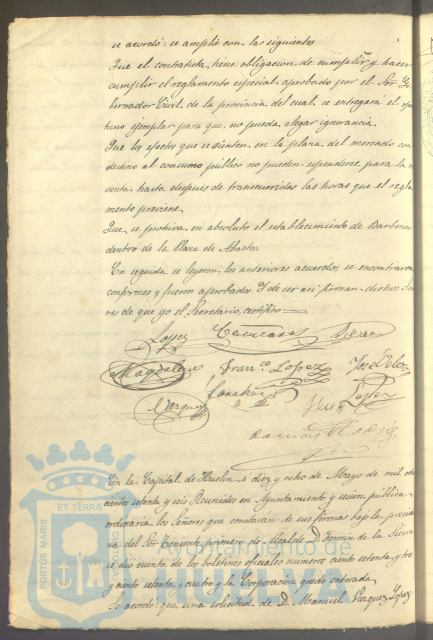 se acordó: se amplió con las siguientes
Que el contratista tiene obligacion de cumplir y hacer
cumplir el reglamento especial aprobado por el Sor Go-
bernador Civil de la provincia del cual se entregara el opor
tuno ejemplar para que no pueda alegar ignorancia.
Que los efectos que se sienten en la plaza del mercado con
destino al consumo público no pueden espenderse para la
venta hasta despues de transcurridas las horas que el regla
mento previene.
Que se prohiva en absoluto el establecimiento de Barberia
dentro de la Plaza de Abastos.
En seguida se leyeron los anteriores acuerdos, se encontraron
conformes y fueron aprobados. Y de ser asi firman dichos Seño
res de que yo el Secretario, certifico
Lopez
Magdalena Franco Lopez José Velez
Sanchez
Vazquez
Lopez
En la Capital de Huelva á diez y ocho de Mayo de mil ocho
cientos setenta y seis Reunidos en Ayuntamiento y sesion pública
ordinaria los Señores que constarán de sus firmas bajo la presiden
cia del Sor Teniente primero de Alcalde D. Fermin de la Sierra
se dio cuenta de los boletines oficiales numeros ciento setenta y tres
y ciento setenta y cuatro y la Corporacion quedó enterada.
Se acordó que una solicitud de D. Manuel Vazquez Lopez
PORTUS MARIS
ET TERRÆ
Ayuntamiento de
HUELVA